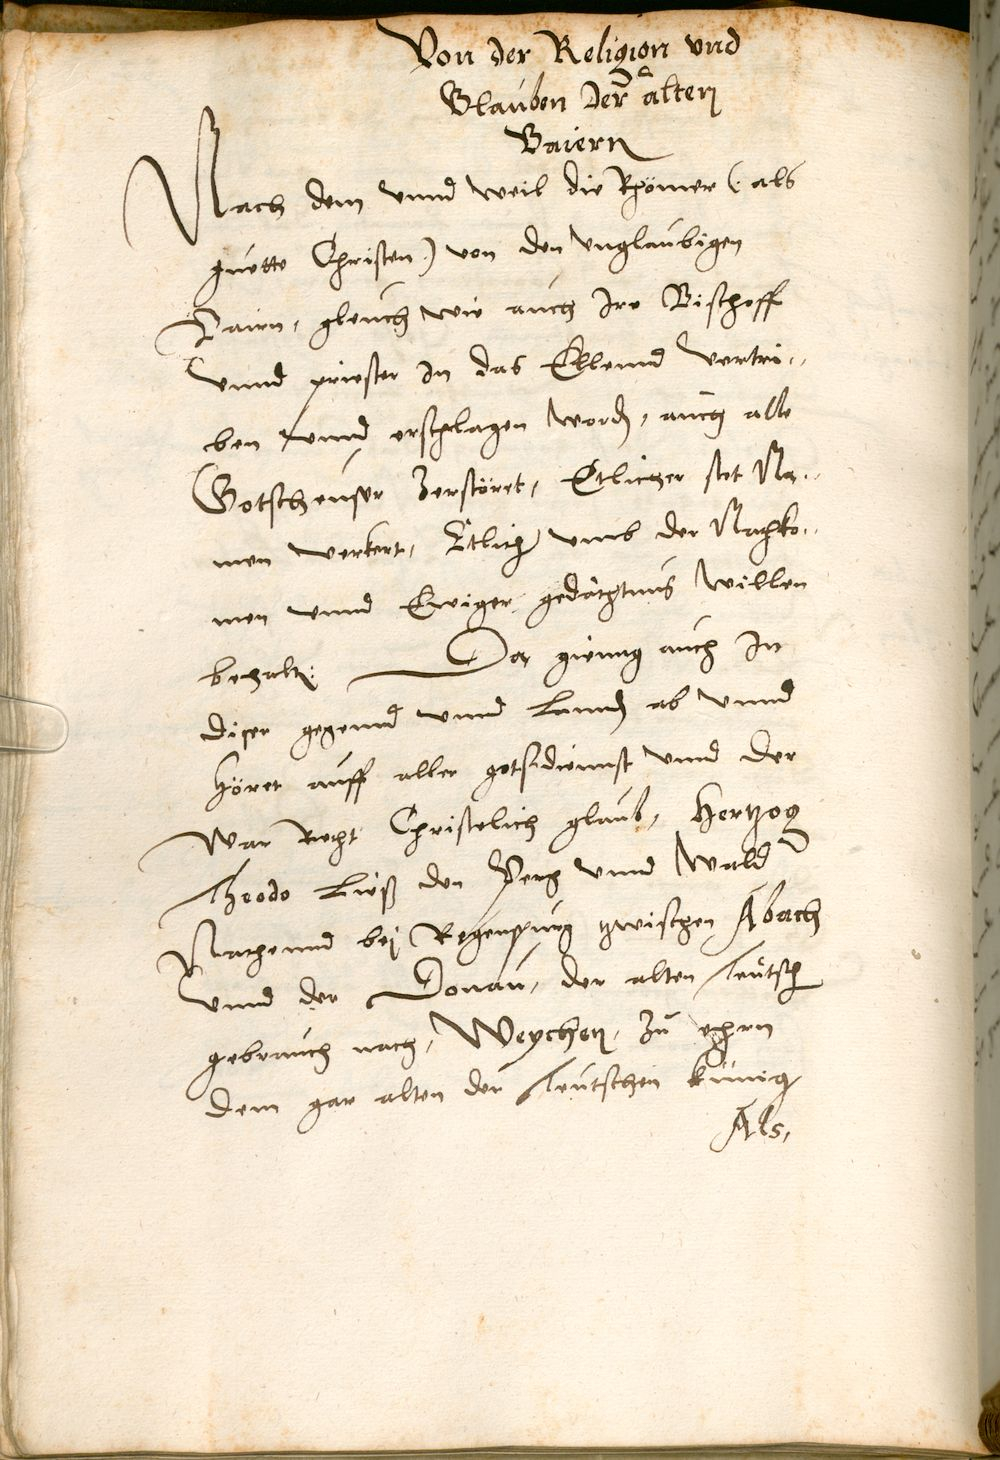 Von der Religion vnd
Glauben der alten
Baiern
Nach dem vnnd weil die Römer (: als
guette Christen :) von den vnglaubigen
Bairn, gleuch wie auch Ire Bischoff
vnnd priester In das Ellennd vertri-
ben vnnd erschlagen worden, auch alle
Gotsheuser Zerstöret, Etlicher stet Na-
men verkert, Etliche vmb der Nachko-
men vnnd Ewiger gedächtnus willen
behalten. Da gienng auch In
diser gegennd vnnd Lannden ab vnnd
höret auff aller gotsdiennst vnnd der
war Recht Christelich glaub, Hertzog
Theodo Ließ den Perg vnnd Wald
Nachennd bej Regenspurg zwischen Abach
vnnd der Donau, der alten Teutschen
gebrauch nach, Weychen, Zu ehrn
dem gar alten der Teutschen künig
Als,